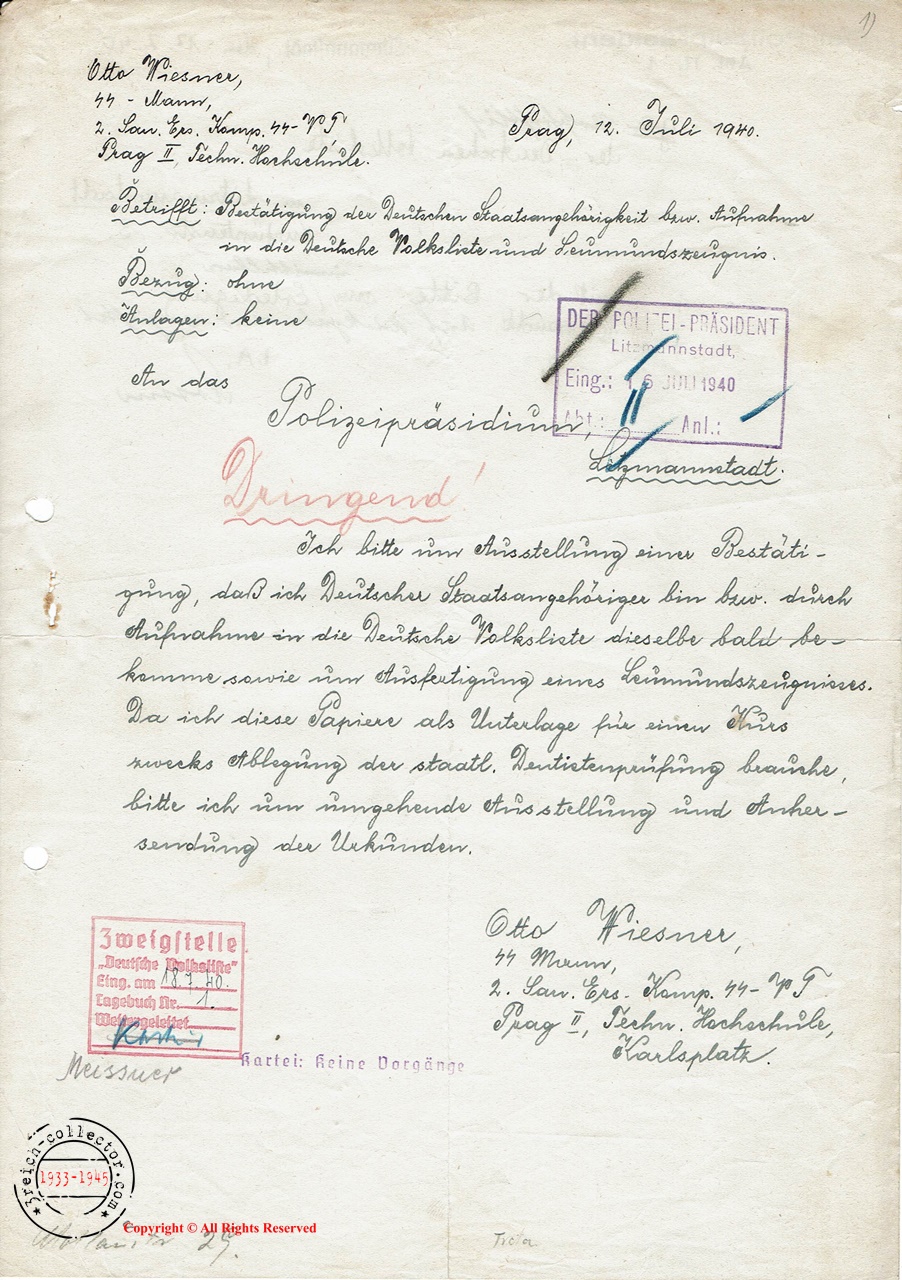 1)
Otto Wiesner,
SS-Mann,
2. San. Ers. Komp. SS-VT
Prag II, Techn. Hochschule.
Prag, 12. Juli 1940.
Betrifft: Bestätigung der Deutschen Staatsangehörigkeit bzw. Aufnahme
in die Deutsche Volksliste und Leumundszeugnis.
Bezug: ohne
Anlagen: keine
DER POLIZEI-PRÄSIDENT
Litzmannstadt,
Eing.: 16 JULI 1940
Abt.: II Anl.:
An das
Polizeipräsidium,
Litzmannstadt.
Dringend!
Ich bitte um Ausstellung einer Bestäti-
gung, daß ich Deutscher Staatsangehöriger bin bzw. durch
Aufnahme in die Deutsche Volksliste dieselbe bald be-
komme sowie um Ausfertigung eines Leumundszeugnisses.
Da ich diese Papiere als Unterlage für einen Kurs
zwecks Ablegung der staatl. Dentistenprüfung brauche,
bitte ich um umgehende Ausstellung und Anher-
sendung der Urkunden.
Otto Wiesner,
SS Mann,
2. San. Ers. Komp. SS-VT
Prag II, Techn. Hochschule,
Karlsplatz.
Zweigstelle
„Deutsche Volksliste"
Eing. am 18.7.40.
Tagebuch Nr. 1.
Weitergeleitet
Kartei: Keine Vorgänge
Meissner
3reich-collector.com
1933-1945
Copyright © All Rights Reserved
29.